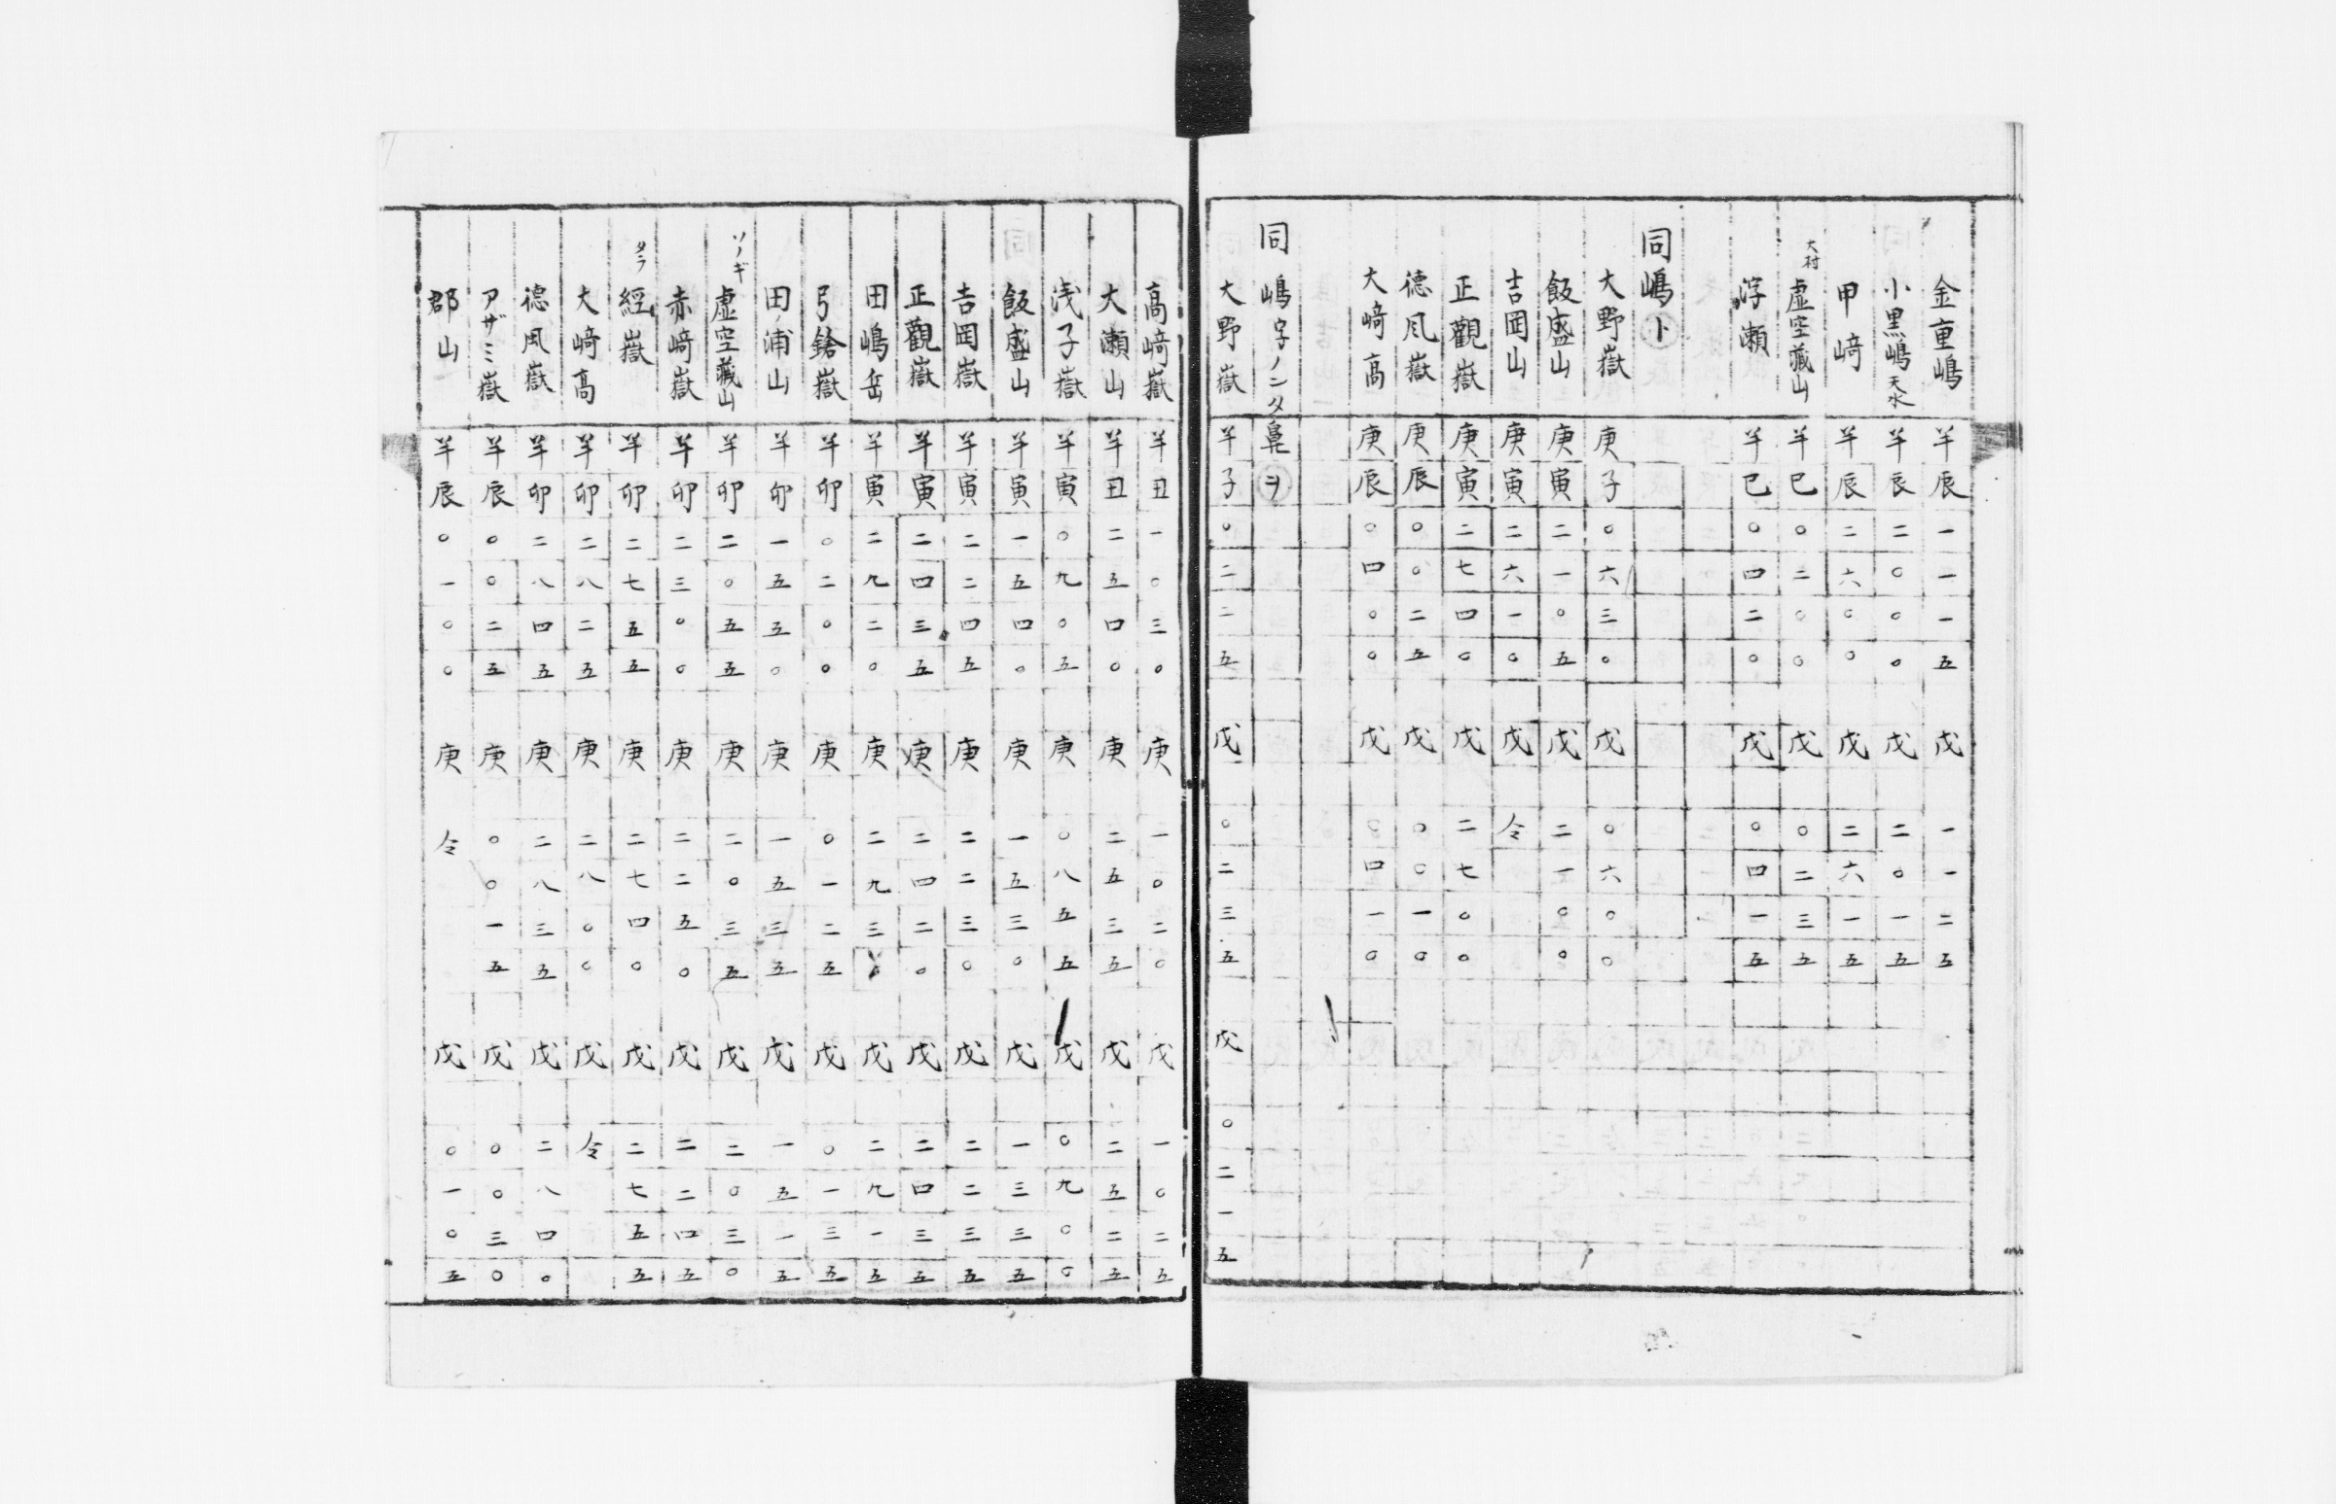 金重嶋 羊辰 一一一五 戊 一一二五
小黒嶋天水 羊辰 二〇〇〇 戊 二〇一五
甲﨑 羊辰 二六〇〇 戊 二六一五
大村 虚空蔵山 羊巳 〇二〇〇 戊 〇二三五
浮瀬 羊巳 〇四二〇 戊 〇四一五
同嶋ト
大野嶽 庚子 〇六三〇 戊 〇六〇〇
飯盛山 庚寅 二一〇五 戊 二一〇〇
吉岡山 庚寅 二六一〇 戊 仝
正觀嶽 庚寅 二七四〇 戊 二七〇〇
德風嶽 庚辰 〇〇二五 戊 〇〇一〇
大﨑高 庚辰 〇四〇〇 戊 〇四一〇
同嶋字ノンタ鼻ヲ
大野嶽 羊子 〇二二五 戊 〇二三五 戊 〇二一五
高﨑嶽 羊丑 一〇三〇 庚 一〇二〇 戊 一〇二五
大瀬山 羊丑 二五四〇 庚 二五三五 戊 二五二五
浅子嶽 羊寅 〇九〇五 庚 〇八五五 戊 〇九〇〇
飯盛山 羊寅 一五四〇 庚 一五三〇 戊 一三三五
吉岡嶽 羊寅 二二四五 庚 二二三〇 戊 二二三五
正觀嶽 羊寅 二四三五 庚 二四二〇 戊 二四三五
田嶋岳 羊寅 二九二〇 庚 二九三〇 戊 二九一五
弓鎗嶽 羊卯 〇二〇〇 庚 〇一二五 戊 〇一三五
田ノ浦山 羊卯 一五五〇 庚 一五三五 戊 一五一五
ソノギ 虚空蔵山 羊卯 二〇五五 庚 二〇三五 戊 二〇三〇
赤﨑嶽 羊卯 二三〇〇 庚 二二五〇 戊 二二四五
タラ 經嶽 羊卯 二七五五 庚 二七四〇 戊 二七五五
大﨑高 羊卯 二八二五 庚 二八〇〇 戊 仝
德風嶽 羊卯 二八四五 庚 二八三五 戊 二八四〇
アザミ嶽 羊辰 〇〇二五 庚 〇〇一五 戊 〇〇三〇
郡山 羊辰 〇一〇〇 庚 仝 戊 〇一〇五